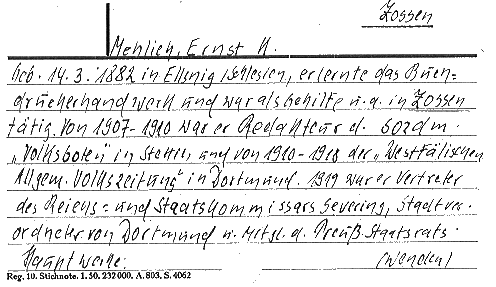 Zossen
Mehlich, Ernst H.
Geb. 14.3.1882 in Ellsnig Schlesien, erlernte das Buch=
druckerhandwerk und war als Gehilfe u.a. in Zossen
tätig. Von 1907-1910 war er Redakteur d. sozdm.
„Volksboten" in Stettin, und von 1910-1918 der „Westfälischen
Allgem. Volkszeitung" in Dortmund. 1919 war er Vertreter
des Reichs= und Staatskommissars Severing, Stadtver.
ordneter von Dortmund u. Mitgl. d. Preuß. Staatsrats.
Hauptwerke: (wenden)
Reg. 10. Stichnote. 1. 50. 232000. A. 803. S. 4062